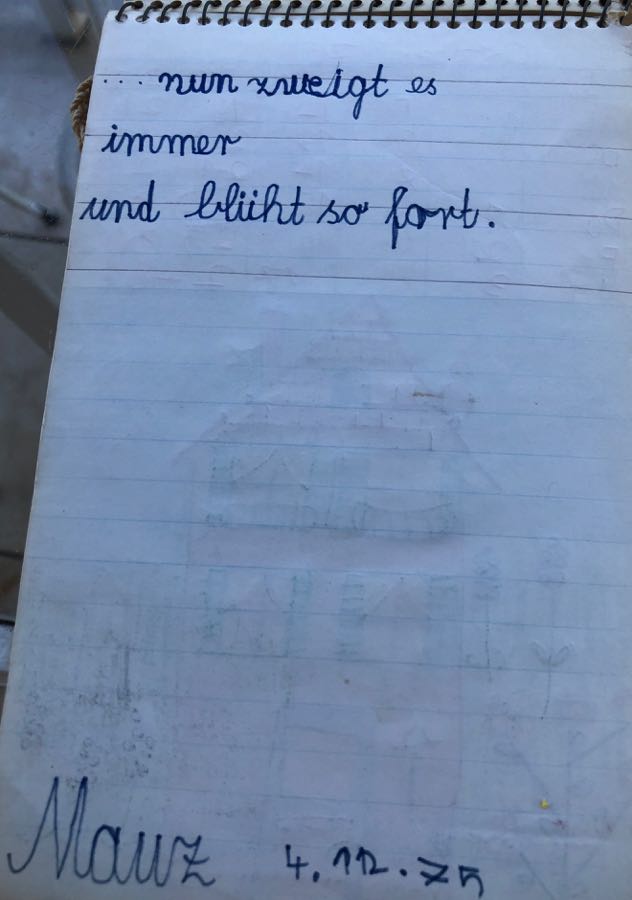 ... nun zweigt es
immer
und blüht so fort.
Mauz 4.12.75